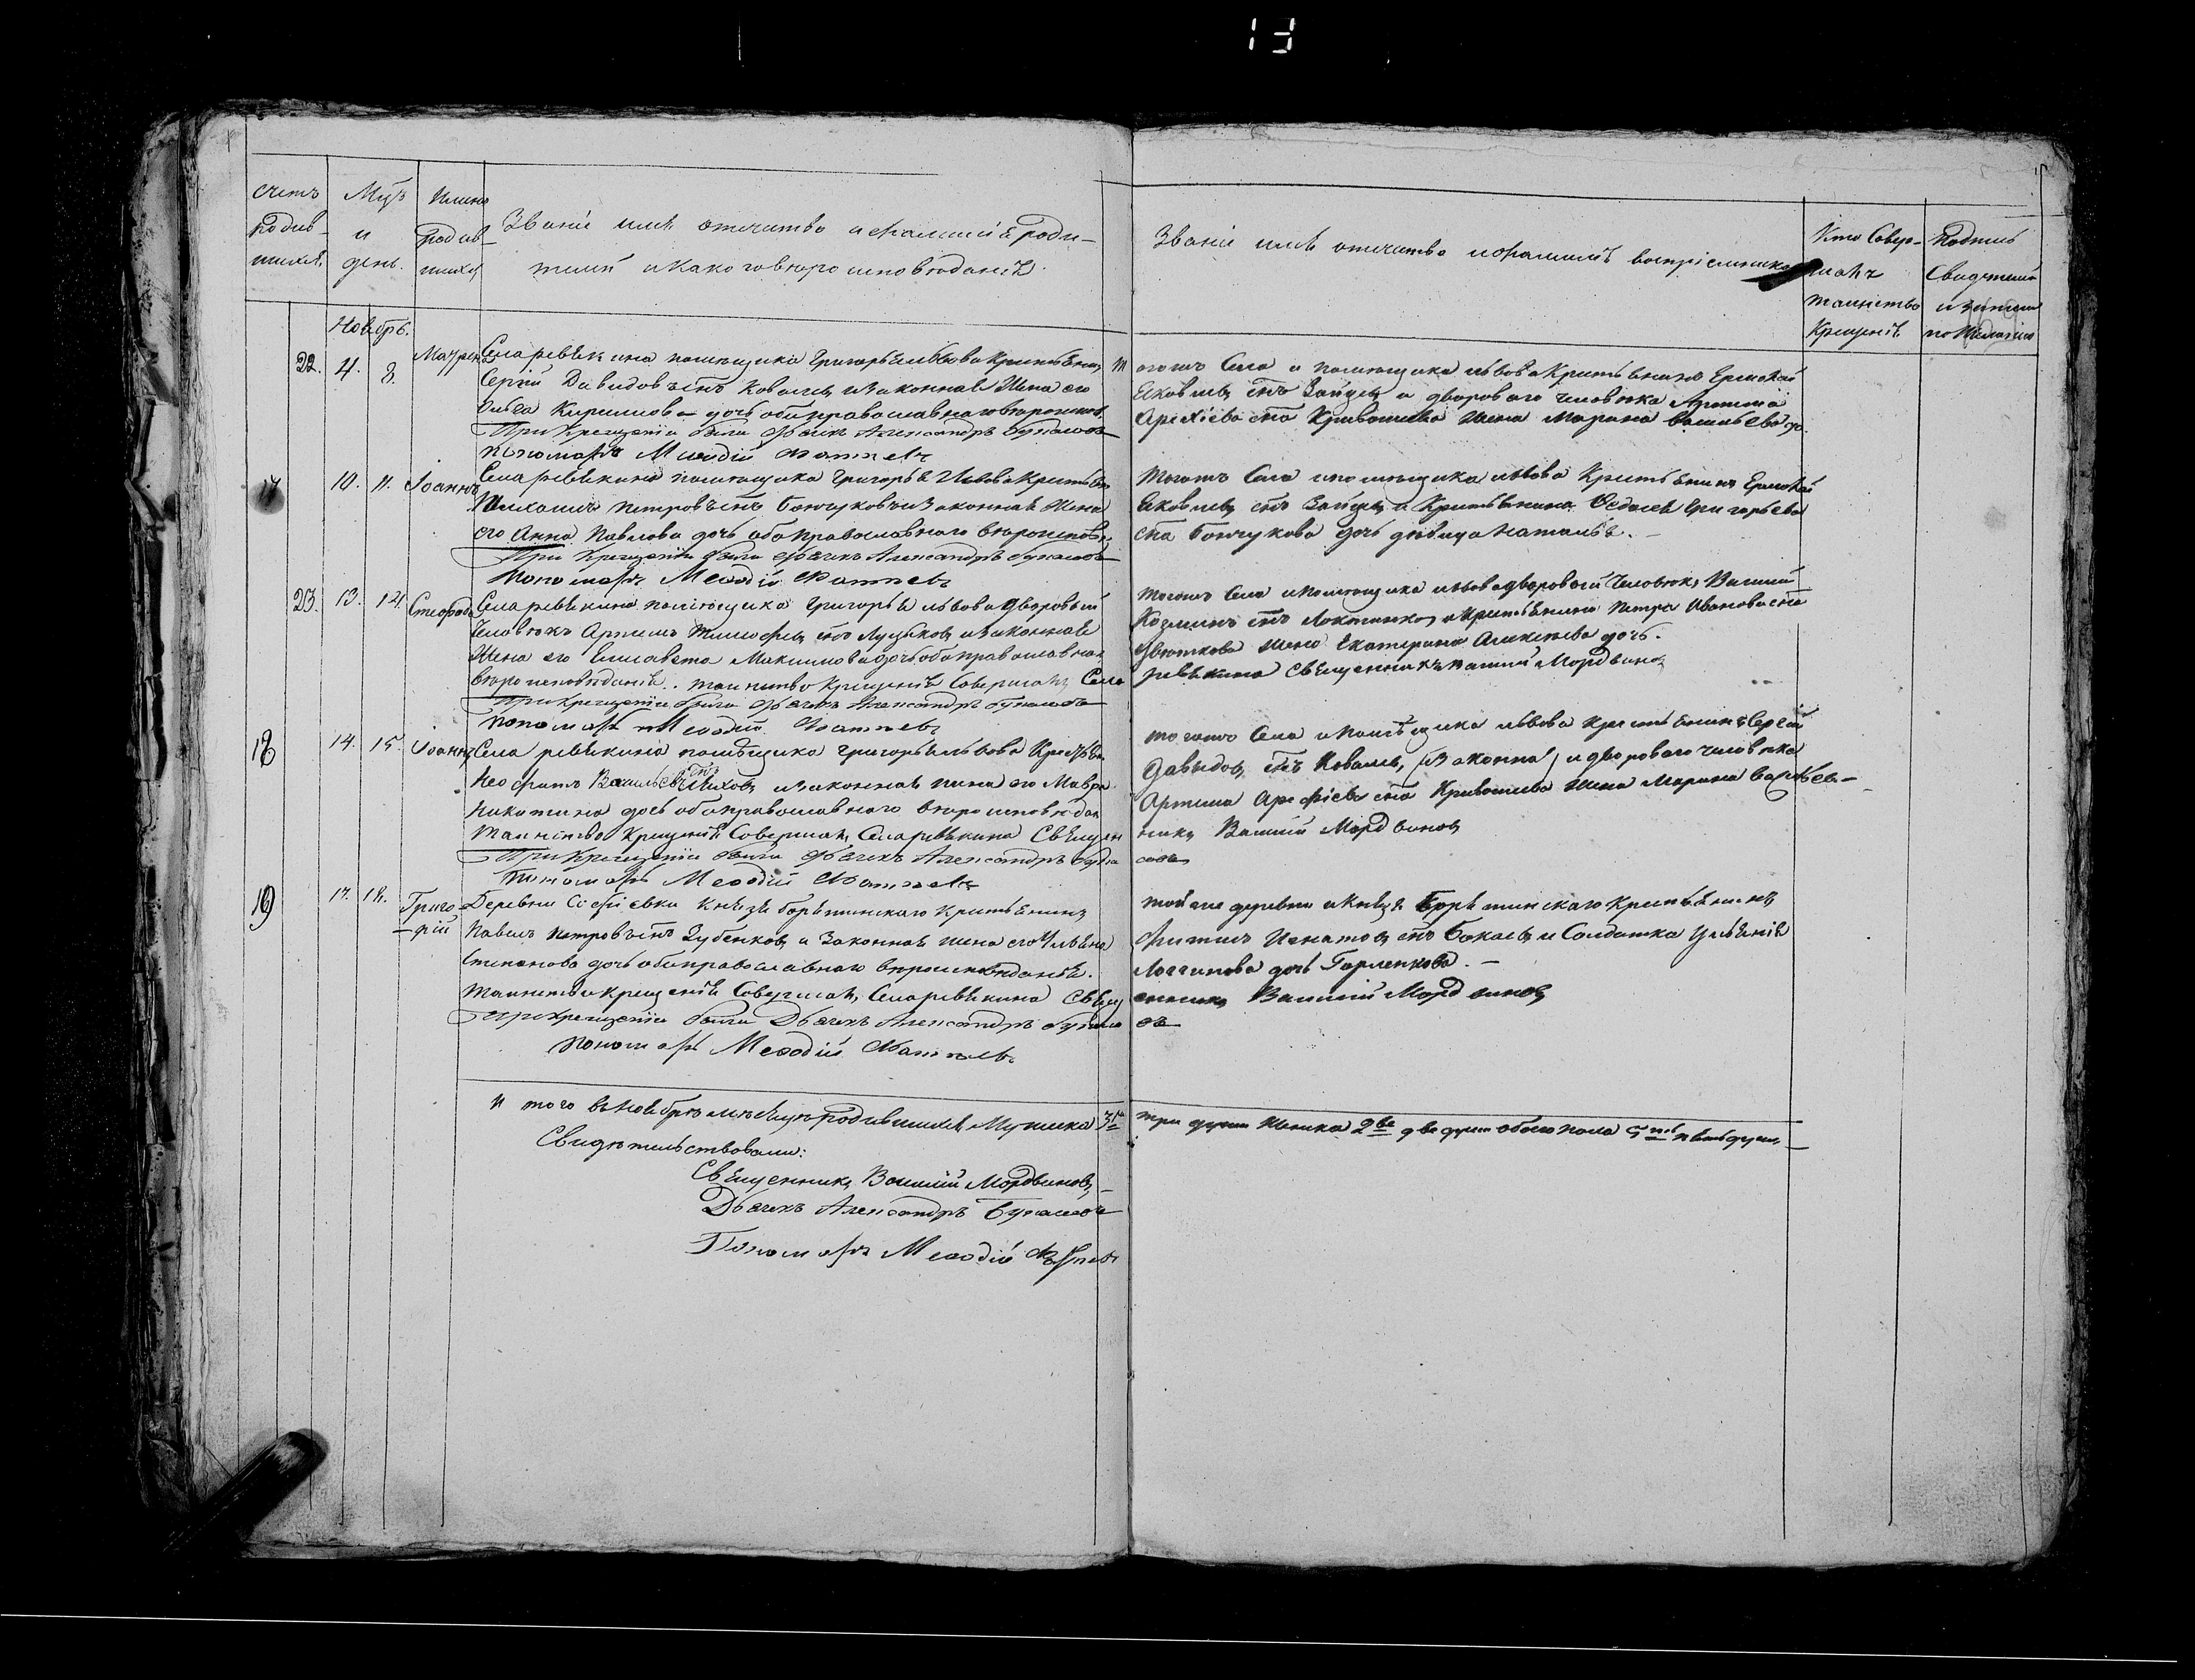 13
счетъ родив- шихся.
Мцъ и день.
имена родив- шихся
Званіе имя отечество и фамилія роди-
телей и какого вѣроисповѣданія.
Званіе имя отечество и фамилія воспріемников
Кто Совер- шалъ таинство Крещенія
Подпись Свидетелей
Ноябрь.
22. 4. 8. Села ревякина помѣщика Григорья Львова Крестьянинъ
Сергій Давидовъ снъ Ковалец и законная жена его
Ольга Кирилова дочь оба православнаго вѣроиспов.
При крещеніи были Дьячекъ Александръ
пономарь Меѳодій
тогожъ Села и помѣщика львова Крестьянинъ Ермолай
Яковлец снъ Зайцец и двороваго человѣка Артема
Арефіева сна Кривошеева жена Марина васильева до.
17 10. 11. Іоаннъ Села ревякина помѣщика Григорья Львова Крестьян
Михаилъ петровъ снъ Бончуковъ и законная жена
его Анна Павлова дочь оба православнаго вѣроисповѣ.
При крещеніи были дьячекъ Александръ
пономарь Меѳодій
тогожъ Села и помѣщика львова Крестьянинъ Ермолай
Яковлец снъ Зайцец и Крестьянина Ѳедосея Григорьева
сна Бончукова дочь дѣвица наталья.
23. 13. 14. Села ревякина помѣщика Григорья львова дворовый
человѣкъ Артемъ Тимофец снъ Луцыков и законная
жена его Елисавета Максимова дочь оба православнаг
вѣроисповѣданія. таинство крещенія Совершалъ Села
При крещеніи были Дьячекъ Александръ
пономарь Меѳодій
тогожъ Села и помѣщика львова дворовой человѣкъ Василій
Козминъ снъ Локтинков и крестьянина петра Иванова сна
Цвѣткова жена Екатерина Алексѣева дочь.
ревякина Священникъ василій Мордвинов
18 14. 15. Іоаннъ Села ревякина помѣщика Григорья львова Крестьян
Неофитъ Васильевъ снъ Лихов и законная жена его Мавра
Никитина дочь оба православнаго вѣроисповѣдан
таинство крещенія Совершалъ Села ревякина Священ
При крещеніи были дьячекъ Александръ
пономарь Меѳодій
тогожъ Села и помѣщика львова крестьянинъ Сергій
Давыдов снъ Ковалец, и двороваго человѣка
Артема Арефіева сна Кривошеева жена Марина Васильев-
никъ Василій Мордвинов
19 17. 18. Григо-рій Деревни Софіевки Князя борятинскаго крестьянинъ
Павелъ петровъ снъ Зубенков и законная жена его Ульяна
Степанова дочь оба православнаго вѣроисповѣданія.
таинство крещенія Совершалъ Села ревякина Свящ
При крещеніи были Дьячекъ Александръ
пономарь Меѳодій
той же деревни и Князя борятинскаго крестьянинъ
Филипъ Игнатов снъ Бокаев и Солдатка Ульянія
Логгинова дочь Горленкова.
енникъ Василій Мордвинов
И того въ Ноябрѣ мѣсяцѣ родившихся мужеска 3 три души женска 2 две души обоего пола 5 пять душ.
Свидѣтельствовали:
Священникъ Василій Мордвинов,
Дьячекъ Александръ
Пономарь Меѳодій